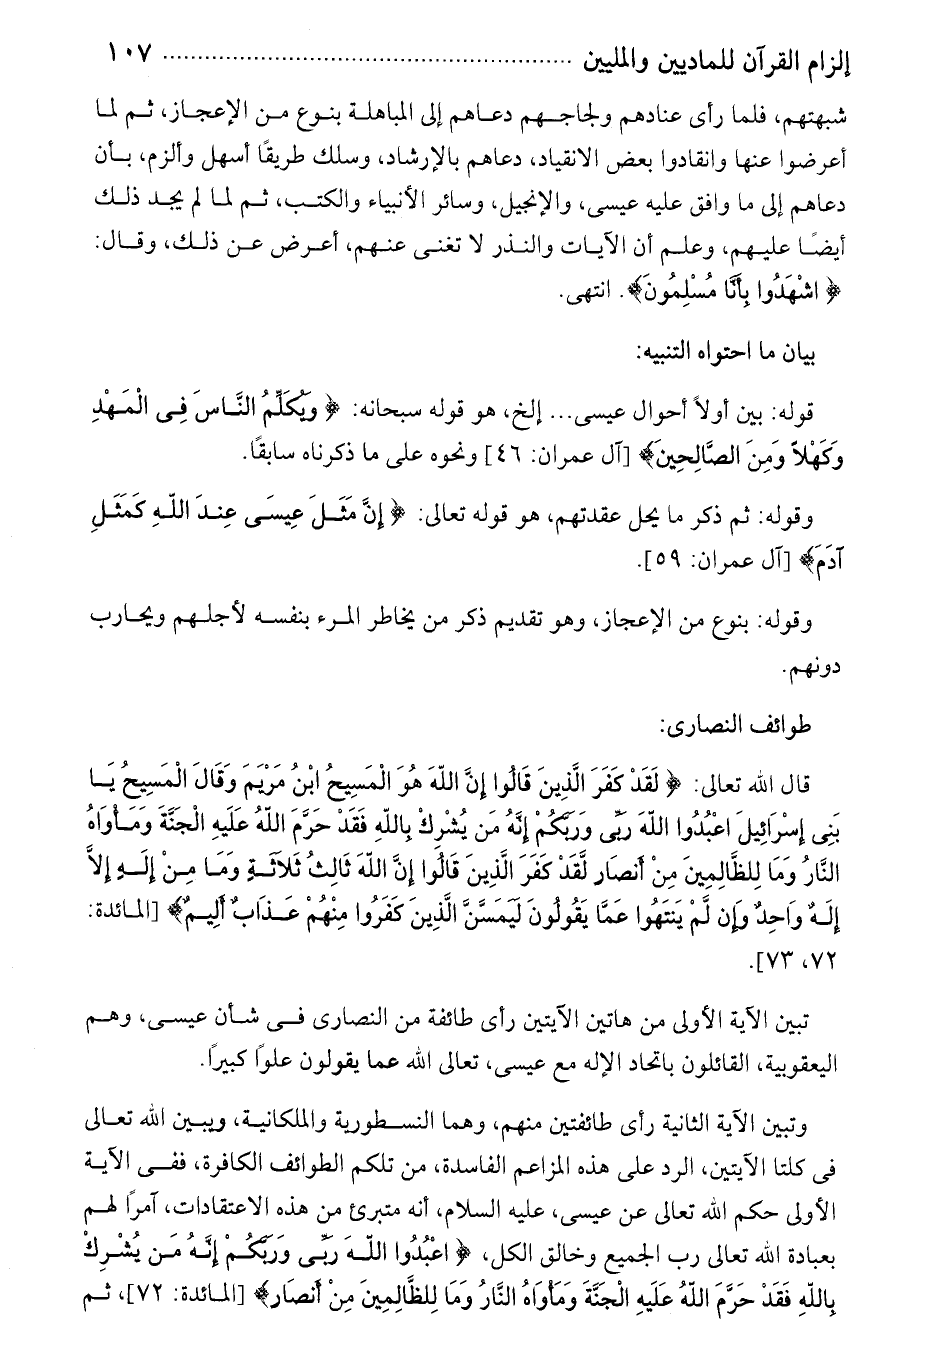 إلزام القرآن للماديين والمليين ........................................................ ١٠٧
شبهتهم، فلما رأى عنادهم ولجاجهم دعاهم إلى المباهلة بنوع من الإعجاز، ثم لما
أعرضوا عنها وانقادوا بعض الانقياد، دعاهم بالإرشاد، وسلك طريقًا أسهل وألزم، بأن
دعاهم إلى ما وافق عليه عيسى، والإنجيل، وسائر الأنبياء والكتب، ثم لما لم يجد ذلك
أيضًا عليهم، وعلم أن الآيات والنذر لا تغنى عنهم، أعرض عن ذلك، وقال:
﴿اشْهَدُوا بِأَنَّا مُسْلِمُونَ﴾. انتهى.
بيان ما احتواه التنبيه:
قوله: بين أولاً أحوال عيسى... إلخ، هو قوله سبحانه: ﴿وَيُكَلِّمُ النَّاسَ فِى الْمَهْدِ
وَكَهْلاً وَمِنَ الصَّالِحِينَ﴾ [آل عمران: ٤٦] ونحوه على ما ذكرناه سابقًا.
وقوله: ثم ذكر ما يحل عقدتهم، هو قوله تعالى: ﴿إِنَّ مَثَلَ عِيسَى عِندَ اللّهِ كَمَثَلِ
آدَمَ﴾ [آل عمران: ٥٩].
وقوله: بنوع من الإعجاز، وهو تقديم ذكر من يخاطر المرء بنفسه لأجلهم ويحارب
دونهم.
طوائف النصارى:
قال الله تعالى: ﴿لَقَدْ كَفَرَ الَّذِينَ قَالُوا إِنَّ اللّهَ هُوَ الْمَسِيحُ ابْنُ مَرْيَمَ وَقَالَ الْمَسِيحُ يَا
بَنِى إِسْرَائِيلَ اعْبُدُوا اللّهَ رَبِّى وَرَبَّكُمْ إِنَّهُ مَن يُشْرِكْ بِاللّهِ فَقَدْ حَرَّمَ اللّهُ عَلَيهِ الْجَنَّةَ وَمَأْوَاهُ
النَّارُ وَمَا لِلظَّالِمِينَ مِنْ أَنصَارٍ لَّقَدْ كَفَرَ الَّذِينَ قَالُوا إِنَّ اللّهَ ثَالِثُ ثَلاَثَةٍ وَمَا مِنْ إِلَهٍ إِلاَّ
إِلَهٌ وَاحِدٌ وَإِن لَّمْ يَنتَهُوا عَمَّا يَقُولُونَ لَيَمَسَّنَّ الَّذِينَ كَفَرُوا مِنْهُمْ عَذَابٌ أَلِيمٌ﴾ [المائدة:
٧٢، ٧٣].
تبين الآية الأولى من هاتين الآيتين رأى طائفة من النصارى فى شأن عيسى، وهم
اليعقوبية، القائلون باتحاد الإله مع عيسى، تعالى الله عما يقولون علوًا كبيرًا.
وتبين الآية الثانية رأى طائفتين منهم، وهما النسطورية والملكانية، ويبين الله تعالى
فى كلتا الآيتين، الرد على هذه المزاعم الفاسدة، من تلكم الطوائف الكافرة، ففى الآية
الأولى حكم الله تعالى عن عيسى، عليه السلام، أنه متبرئ من هذه الاعتقادات، آمرًا لهم
بعبادة الله تعالى رب الجميع وخالق الكل، ﴿اعْبُدُوا اللّهَ رَبِّى وَرَبَّكُمْ إِنَّهُ مَن يُشْرِكْ
بِاللّهِ فَقَدْ حَرَّمَ اللّهُ عَلَيهِ الْجَنَّةَ وَمَأْوَاهُ النَّارُ وَمَا لِلظَّالِمِينَ مِنْ أَنصَارٍ﴾ [المائدة: ٧٢]، ثم